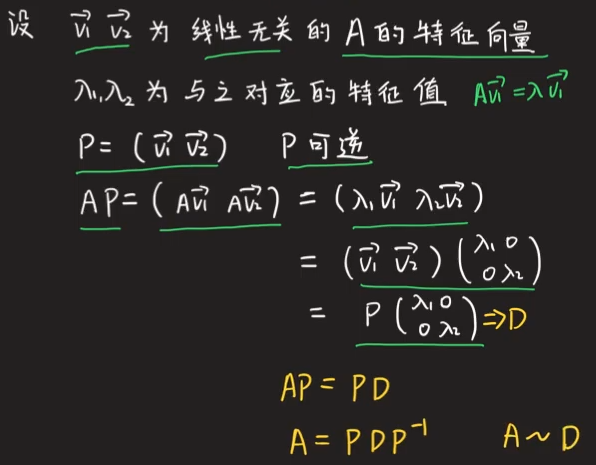 设 v₁⃗ v₂⃗ 为 线性无关 的 A 的 特征向量
λ₁,λ₂ 为 与之对应的特征值 Av₁⃗ = λv₁⃗
P = ( v₁⃗ v₂⃗ ) P 可逆
AP = ( Av₁⃗ Av₂⃗ ) = ( λ₁v₁⃗ λ₂v₂⃗ )
= ( v₁⃗ v₂⃗ ) ( λ₁ 0 0 λ₂ )
= P ( λ₁ 0 0 λ₂ ) ⇒ D
AP = PD
A = PDP⁻¹ A ~ D